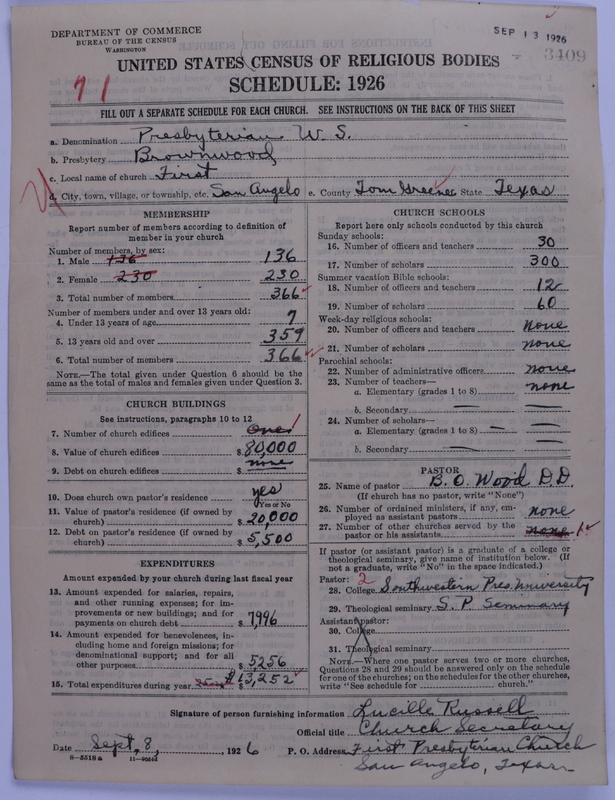 DEPARTMENT OF COMMERCE
BUREAU OF THE CENSUS
WASHINGTON
SEP 13 1926
3409
UNITED STATES CENSUS OF RELIGIOUS BODIES
SCHEDULE: 1926
71
FILL OUT A SEPARATE SCHEDULE FOR EACH CHURCH. SEE INSTRUCTIONS ON THE BACK OF THIS SHEET
a. Denomination Presbyterian U. S.
b. Presbytery Brownwood
c. Local name of church First
d. City, town, village, or township, etc. San Angelo e. County Tom Greene State Texas
MEMBERSHIP
Report number of members according to definition of
member in your church
Number of members, by sex:
1. Male 136 136
2. Female 230 230
3. Total number of members 366
Number of members under and over 13 years old:
4. Under 13 years of age 7
5. 13 years old and over 359
6. Total number of members 366
NOTE.—The total given under Question 6 should be the
same as the total of males and females given under Question 3.
CHURCH BUILDINGS
See instructions, paragraphs 10 to 12
7. Number of church edifices One 1
8. Value of church edifices $ 80,000
9. Debt on church edifices $ none
10. Does church own pastor's residence yes
Yes or No
11. Value of pastor's residence (if owned by
church) $ 20,000
12. Debt on pastor's residence (if owned by
church) $ 5,500
EXPENDITURES
Amount expended by your church during last fiscal year
13. Amount expended for salaries, repairs,
and other running expenses; for im-
provements or new buildings; and for
payments on church debt $ 7996
14. Amount expended for benevolences, in-
cluding home and foreign missions; for
denominational support; and for all
other purposes $ 5256
15. Total expenditures during year $ 13,252
CHURCH SCHOOLS
Report here only schools conducted by this church
Sunday schools:
16. Number of officers and teachers 30
17. Number of scholars 300
Summer vacation Bible schools:
18. Number of officers and teachers 12
19. Number of scholars 60
Week-day religious schools:
20. Number of officers and teachers none
21. Number of scholars none
Parochial schools:
22. Number of administrative officers none
23. Number of teachers—
a. Elementary (grades 1 to 8) none
b. Secondary
24. Number of scholars—
a. Elementary (grades 1 to 8)
b. Secondary
PASTOR
25. Name of pastor B. O. Wood DD
(If church has no pastor, write "None")
26. Number of ordained ministers, if any, em-
ployed as assistant pastors none
27. Number of other churches served by the
pastor or his assistants none 1
If pastor (or assistant pastor) is a graduate of a college or
theological seminary, give name of institution below. (If
not a graduate, write "No" in the space indicated.)
Pastor: 2
28. College Southwestern Pres. University
29. Theological seminary S. P. Seminary
Assistant pastor:
30. College
31. Theological seminary
NOTE.—Where one pastor serves two or more churches,
Questions 28 and 29 should be answered only on the schedule
for one of the churches; on the schedules for the other churches,
write "See schedule for church."
Signature of person furnishing information Lucille Russell
Official title Church Secretary
Date Sept. 8, 1926 P. O. Address First Presbyterian Church
San Angelo, Texas
8-5518a